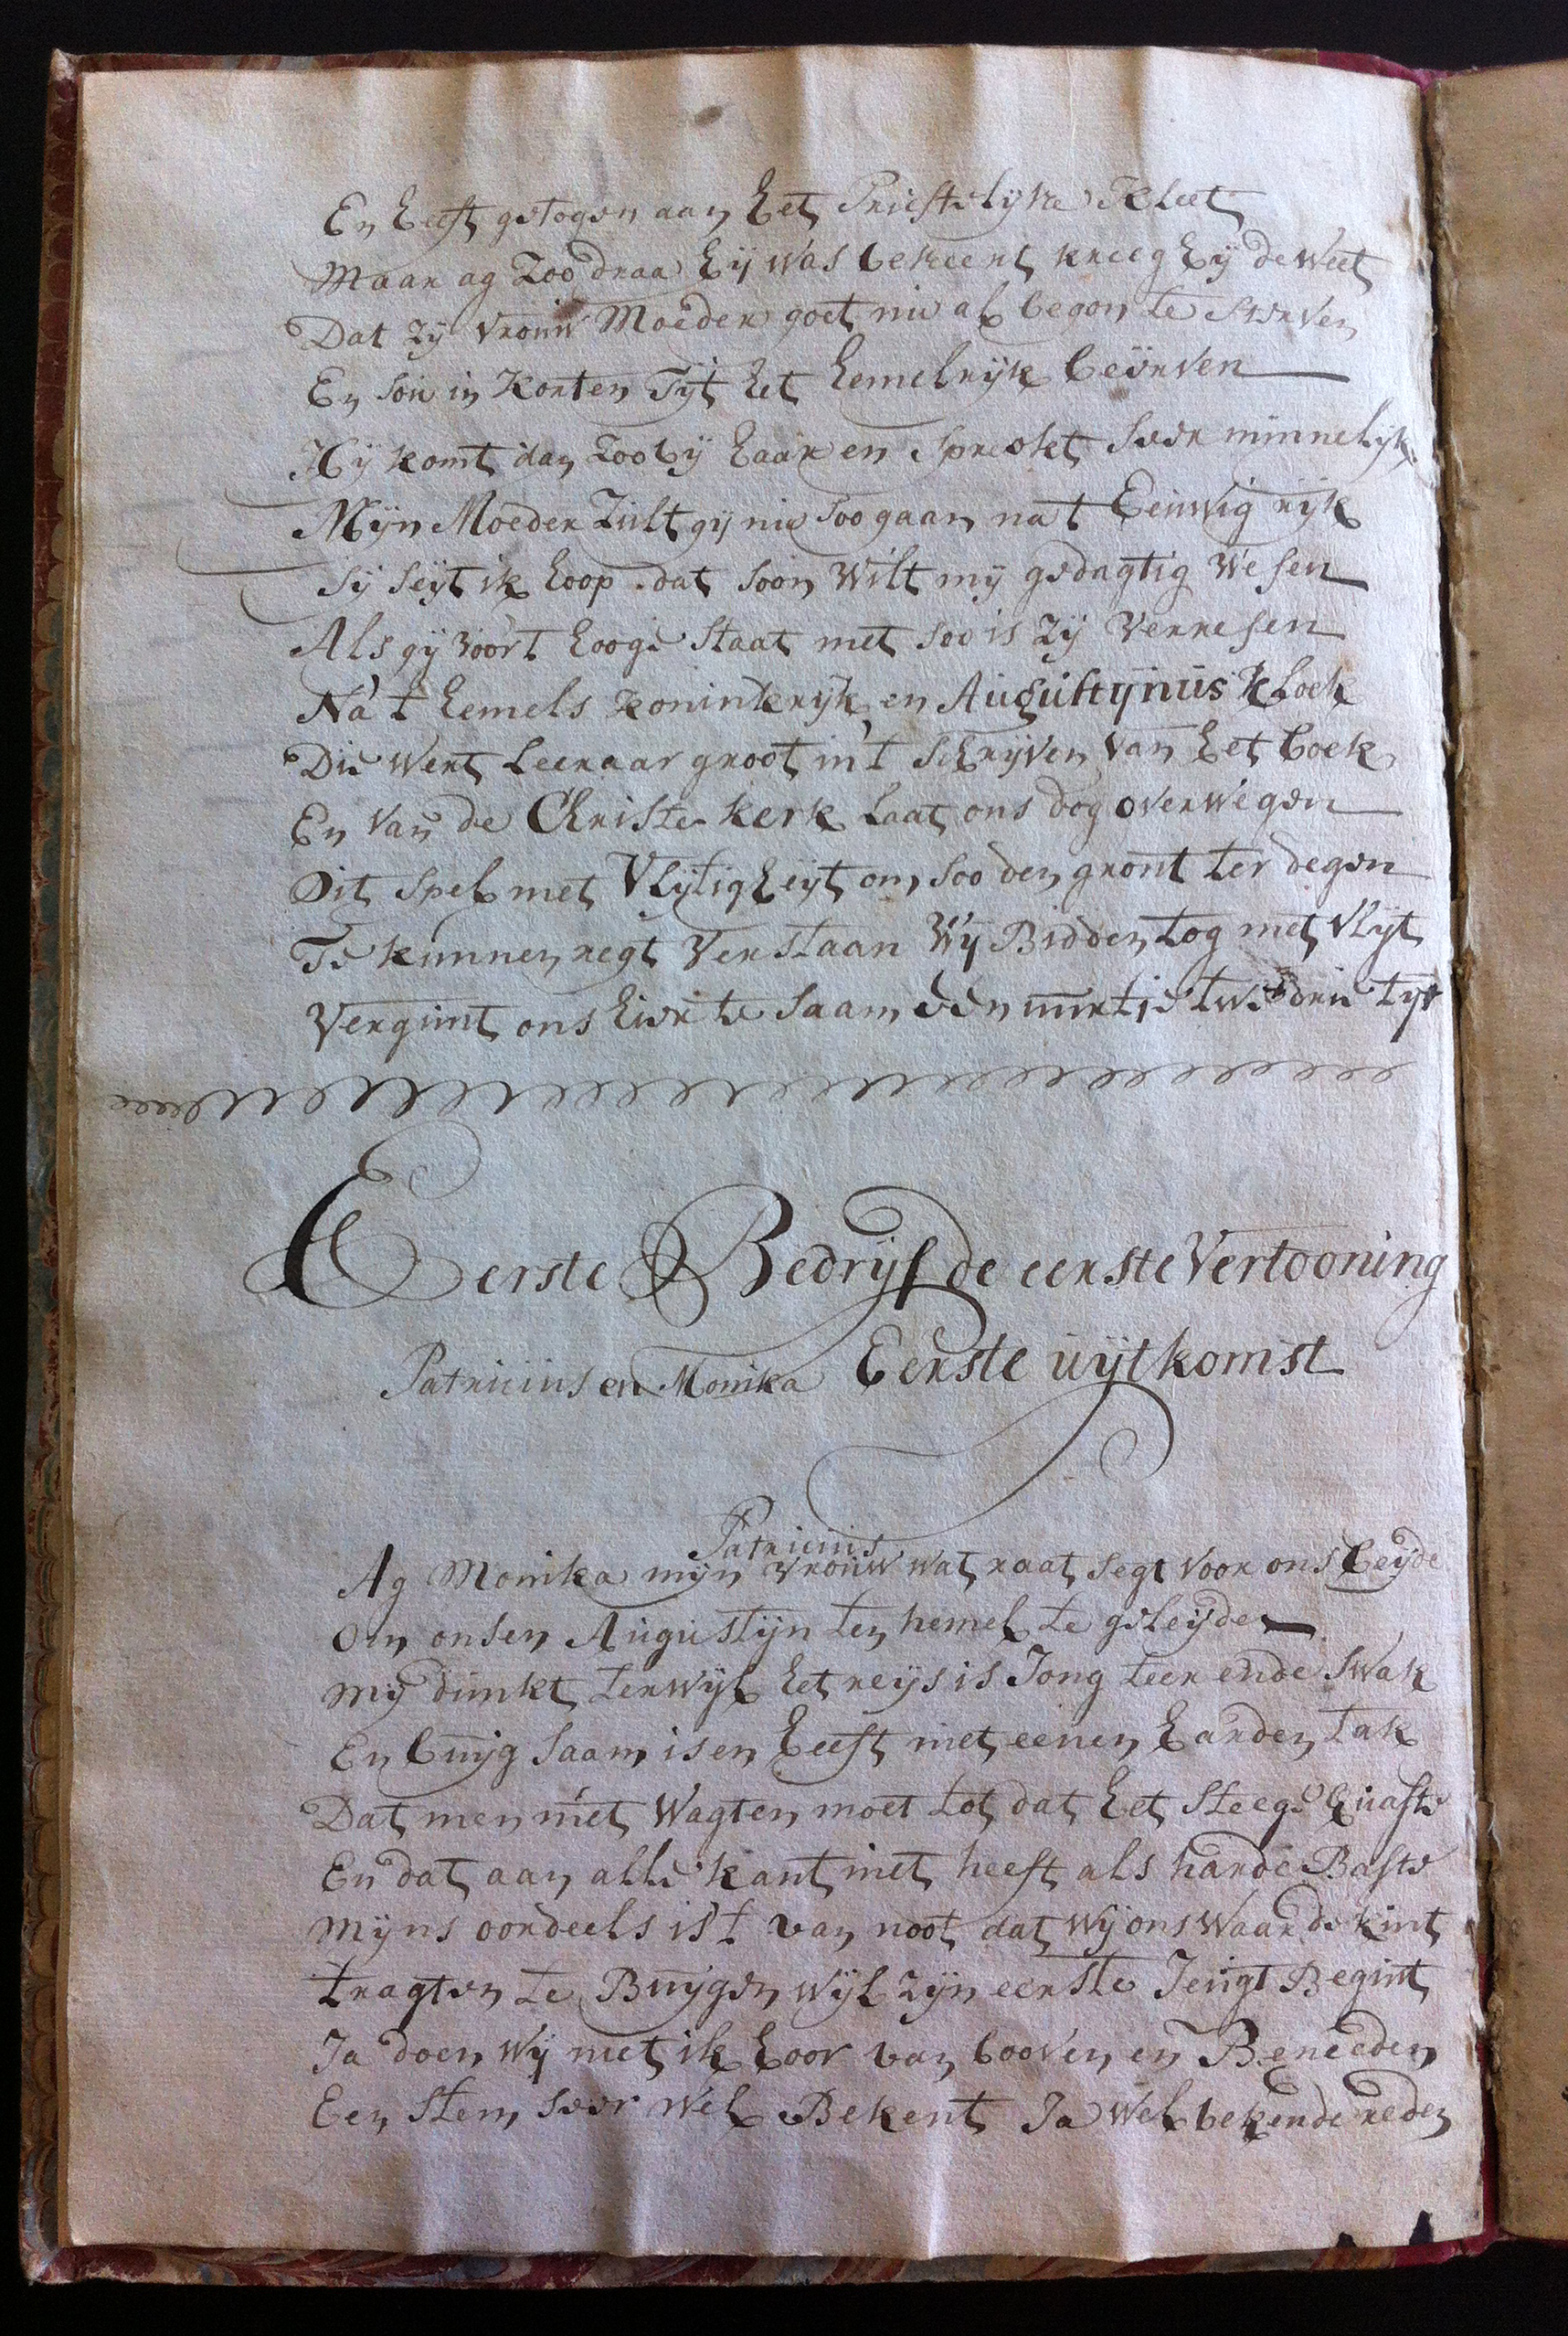 En heeft getogen aan het Priestelijke Kleet
Maar ag Zoo draa hij was bekeert kreeg hij de weet
Dat zij vrouw Moeder goet nu al begon te sterven
En sou in Korten Tijt het hemelrijk beërven
Hij komt dan Zoo bij haar en spreekt seer minnelijk
Mijn Moeder Zult gij nu soo gaan na t Eeuwig rijk
sij seijt ik hoop dat soon wilt mij gedagtig wesen
Als gij voor t hooge staat met soo is zij verresen
Na't hemels koninkrijk en Augustijnus kloek
Die wert Leeraar groot in't schrijven van het boek
En van de Christe kerk Laat ons dog overwegen
Dit spel met vlijtigheijt om soo den gront ter degen
Te kunnen regt verstaan Wij Bidden tog met vlijt
Vergunt ons hier te saam een uurtje twe drie tijt
Eerste Bedrijf de eerste Vertooning
Patricius en Monika Eerste uijtkomst
Patricius
Ag Monika mijn vrouw wat raat segt voor ons beijde
Om onsen Augustijn ten hemel te geleijden
Mij dunkt terwijl het reijs is Jong teer ende swak
En buijgsaam is en heeft niet eenen harden tak
Dat men niet Wagten moet tot dat het steege quaste
En dat aan alle kant niet heeft als harde Baste
Mijns oordeels is't van noot dat wij ons waarde kint
tragten te Buijgen wijl zijn eerste Jeugt Begint
Ja doen wij niet ik hoor van booven en Beneeden
Een stem seer wel Bekent Ja wel bekende reden